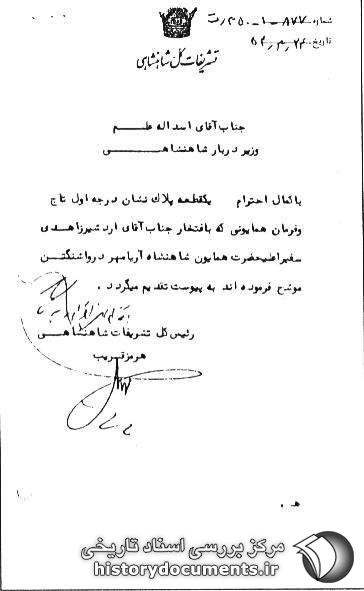 شماره ۸۷۷-۱-۳۵۰-ت
تاریخ ۵۲/۳/۲۴
تشریفات کل شاهنشاهی
جناب آقای اسداله علم
وزیر دربار شاهنشاهی
با کمال احترام یکقطعه پلاک نشان درجه اول تاج
وفرمان همایونی که بافتخار جناب آقای اردشیرزاهدی
سفیراعلیحضرت همایون شاهنشاه آریامهر درواشنگتن
موشح فرموده اند به پیوست تقدیم میگردد.
رئیس کل تشریفات شاهنشاهی
هرمزقریب
ه.
مرکز بررسی اسناد تاریخی
historydocuments.ir